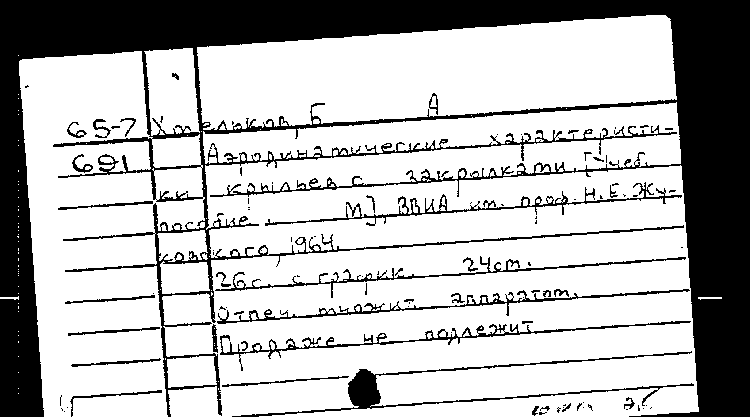 65-7 Хмельков, Б А
691 Аэродинамические характеристи-
ки крыльев с закрылками. [Учеб.
пособие. М.], ВВИА им. проф. Н.Е.Жу-
ковского, 1964.
26с. с график. 24см.
Отпеч. множит. аппаратом.
Продаже не подлежит